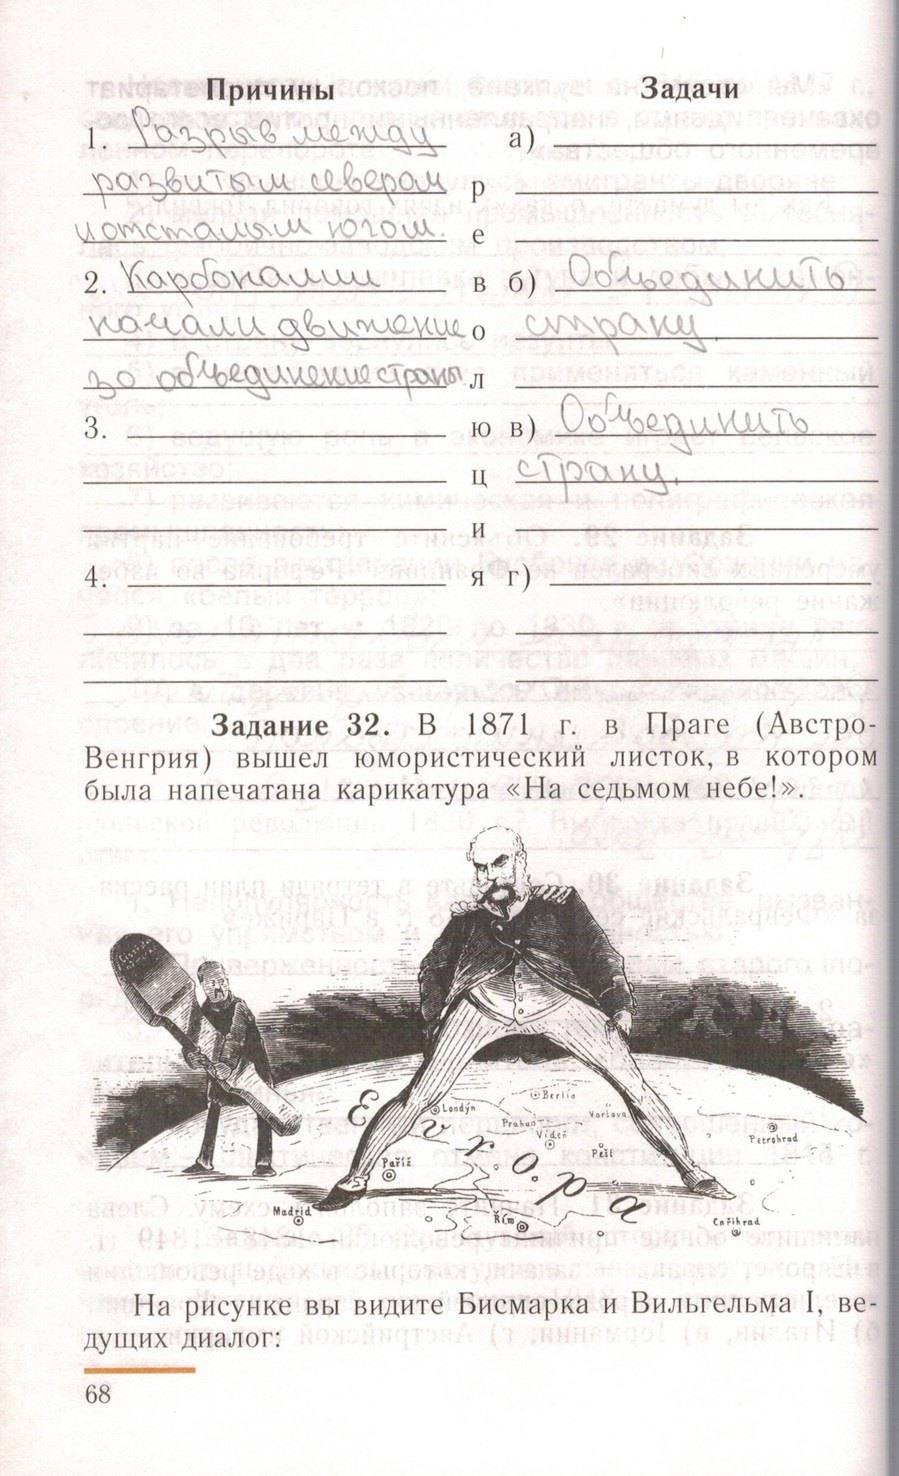 Причины Задачи
1. Разрыв между а)
развитым севером р
и отсталым югом. е
2. Карбоналии в б) Объединить
начали движение о страну.
зо объединение страны. л
3. ю в) Объединить
ц страну.
и
4. я г)
Задание 32. В 1871 г. в Праге (Австро-
Венгрия) вышел юмористический листок, в котором
была напечатана карикатура «На седьмом небе!».
Европа
Londýn
Berlin
Praha
Varšava
Vídeň
Pešť
Petrohrad
Paříž
Madrid
Řím
Cařihrad
На рисунке вы видите Бисмарка и Вильгельма I, ве-
дущих диалог:
68